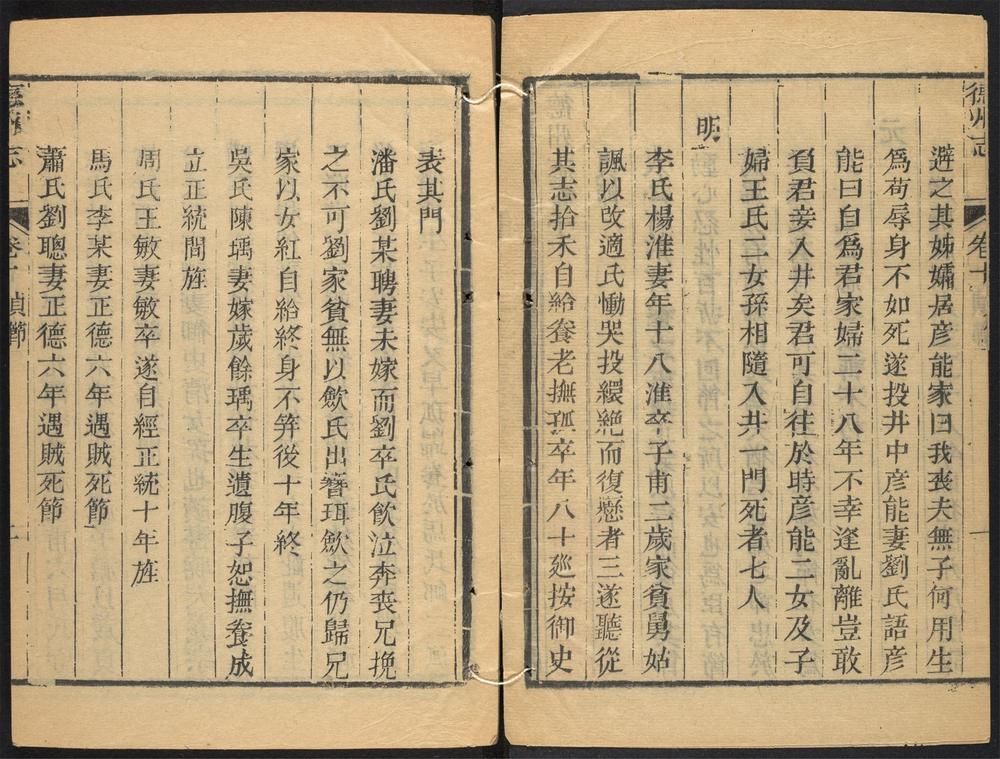 避之其姊孀居彦能家曰我喪夫無子何用生
爲苟辱身不如死遂投井中彦能妻劉氏語彦
能曰自爲君家婦二十八年不幸逢亂離豈敢
負君妾入井矣君可自往於時彦能二女及子
婦王氏二女孫相隨入井一門死者七人
明
李氏楊淮妻年十八淮卒子甫三歲家貧舅姑
諷以改適氏慟哭投繯絶而復甦者三遂聽從
其志拾禾自給養老撫孤卒年八十廵按御史
表其門
潘氏劉某聘妻未嫁而劉卒氏飲泣奔喪兄挽
之不可劉家貧無以歛氏出簪珥歛之仍歸兄
家以女紅自給終身不笄後十年終
吳氏陳瑀妻嫁歲餘瑀卒生遺腹子恕撫養成
立正統間旌
周氏王敏妻敏卒遂自經正統十年旌
馬氏李某妻正德六年遇賊死節
蕭氏劉聰妻正德六年遇賊死節
卷十 貞節